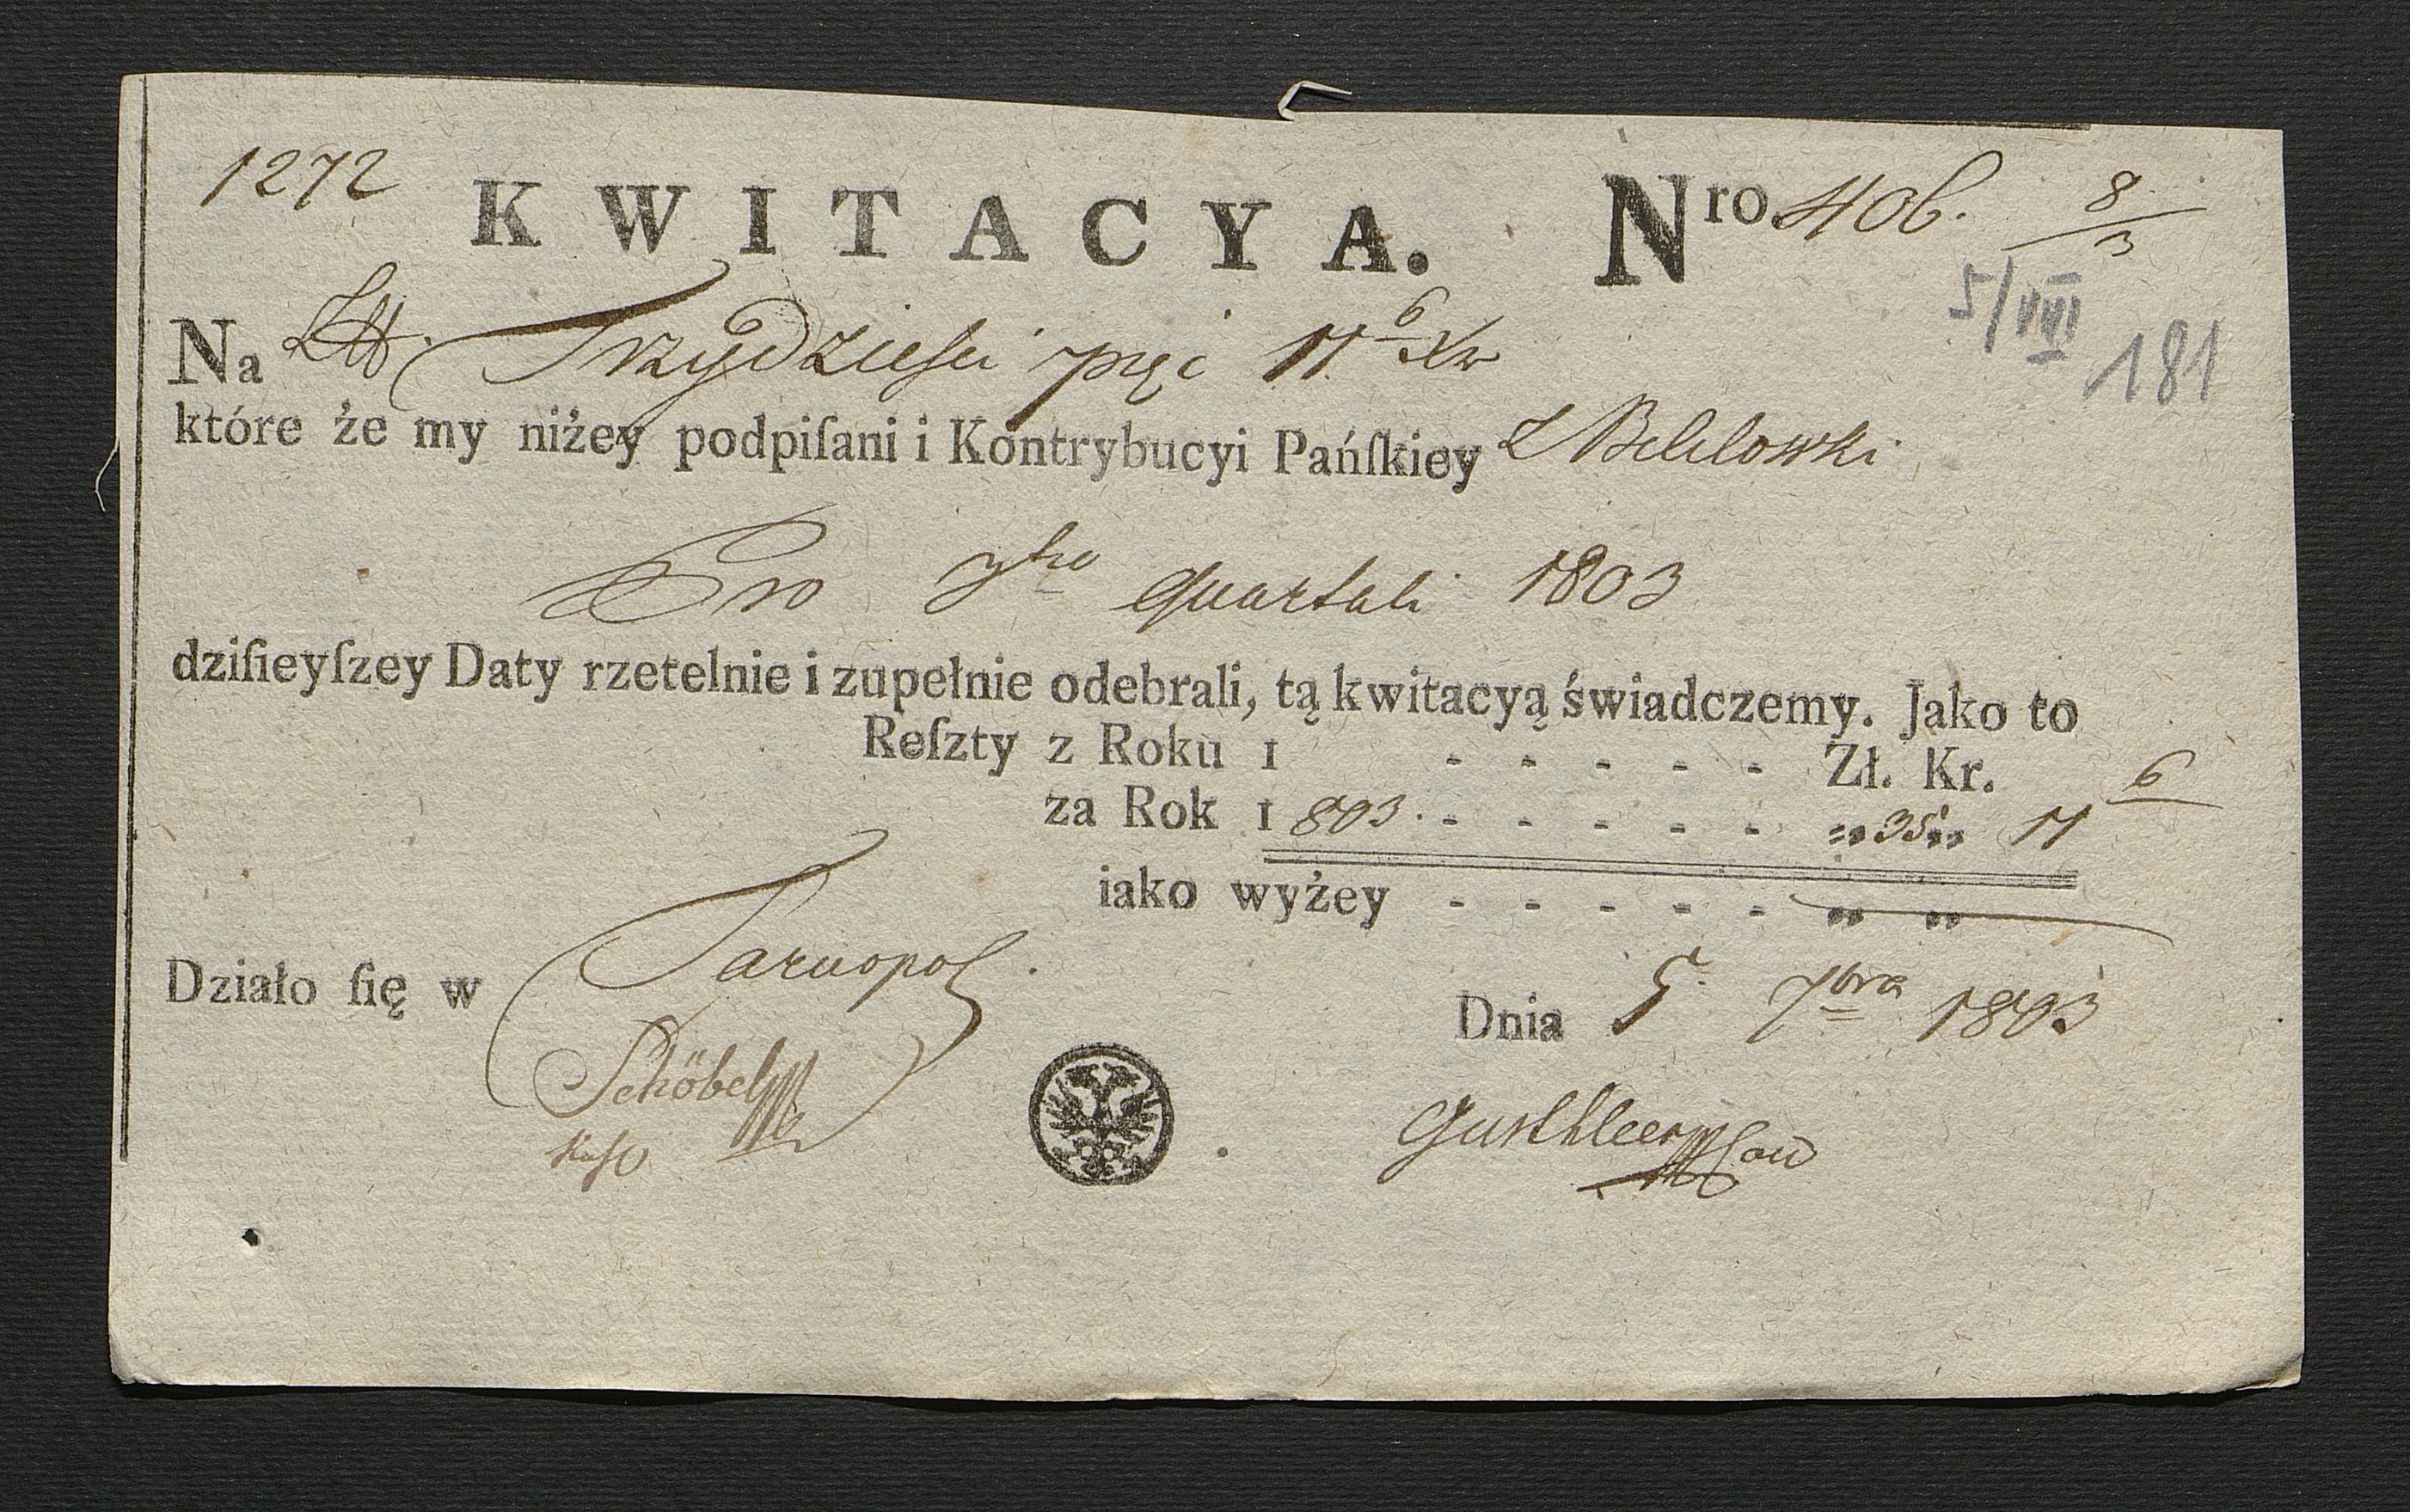 1272 KWITACYA. Nro. 406. 8/3
5/VIII 181
Na Trzydziesci pięć 11 6 Xr
które że my niżey podpiſani i Kontrybucyi Pańſkiey z Bililowki
Pro quartali 1803
dziſieyſzey Daty rzetelnie i zupełnie odebrali, tą kwitacyą świadczemy. Jako to
Reſzty z Roku 1 - - - - - Zł. Kr.
za Rok 1803. - - - - - „35„ 11 6
iako wyżey - - - - - „ „
Działo ſię w Tarnopol.
Dnia 5. 7bra 1803
Schöbel